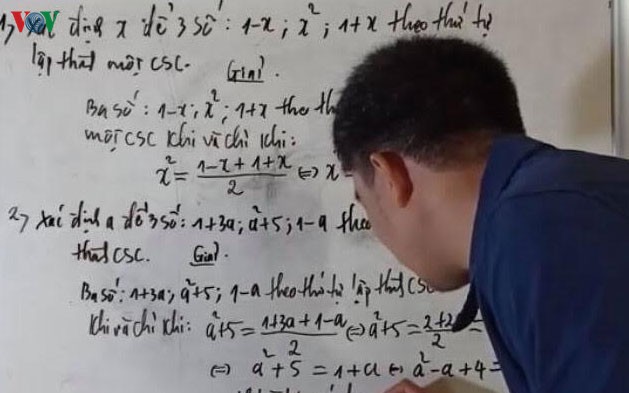 VOV
1, Xác định x để 3 số: 1-x; x²; 1+x theo thứ tự
lập thành một CSC.
Giải.
Ba số: 1-x; x²; 1+x theo
một CSC khi và chỉ khi:
x² = (1-x+1+x)/2 ⇔ x
2, Xác định a để 3 số: 1+3a; a²+5; 1-a
thành CSC.
Giải.
Ba số: 1+3a; a²+5; 1-a theo thứ tự lập thành CSC
khi và chỉ khi: a²+5 = (1+3a+1-a)/2 ⇔ a²+5 =
⇔ a²+5 = 1+a ⇔ a²-a+4 =